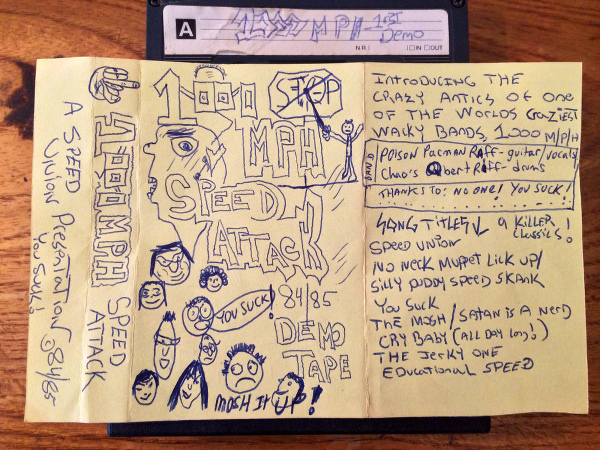 A
1000 MPH - 1ST
DEMO
N.R.
IN OUT
A SPEED UNION PRESENTATION © 84/85
YOU SUCK!
1000 MPH SPEED
ATTACK
1000
STOP
MPH
SPEED
ATTACK
YOU SUCK!
84/85
DEMO
TAPE
MOSH IT UP!
INTRODUCING THE
CRAZY ANTICS OF ONE
OF THE WORLDS CRAZIEST
WACKY BANDS, 1,000 M/P/H
BAND
POISON PACMAN RIFF- guitar/vocals
Chao's Qbert Riff- drums
THANKS TO: NO ONE! YOU SUCK!
SONG TITLES 9 KILLER
CLASSICS!
SPEED UNION
NO NECK MUPPET LICK UP/
SILLY PUDDY SPEED SKANK
YOU SUCK
THE MOSH/SATAN IS A NERD
CRY BABY (ALL DAY LONG!)
THE JERKY ONE
EDUCATIONAL SPEED